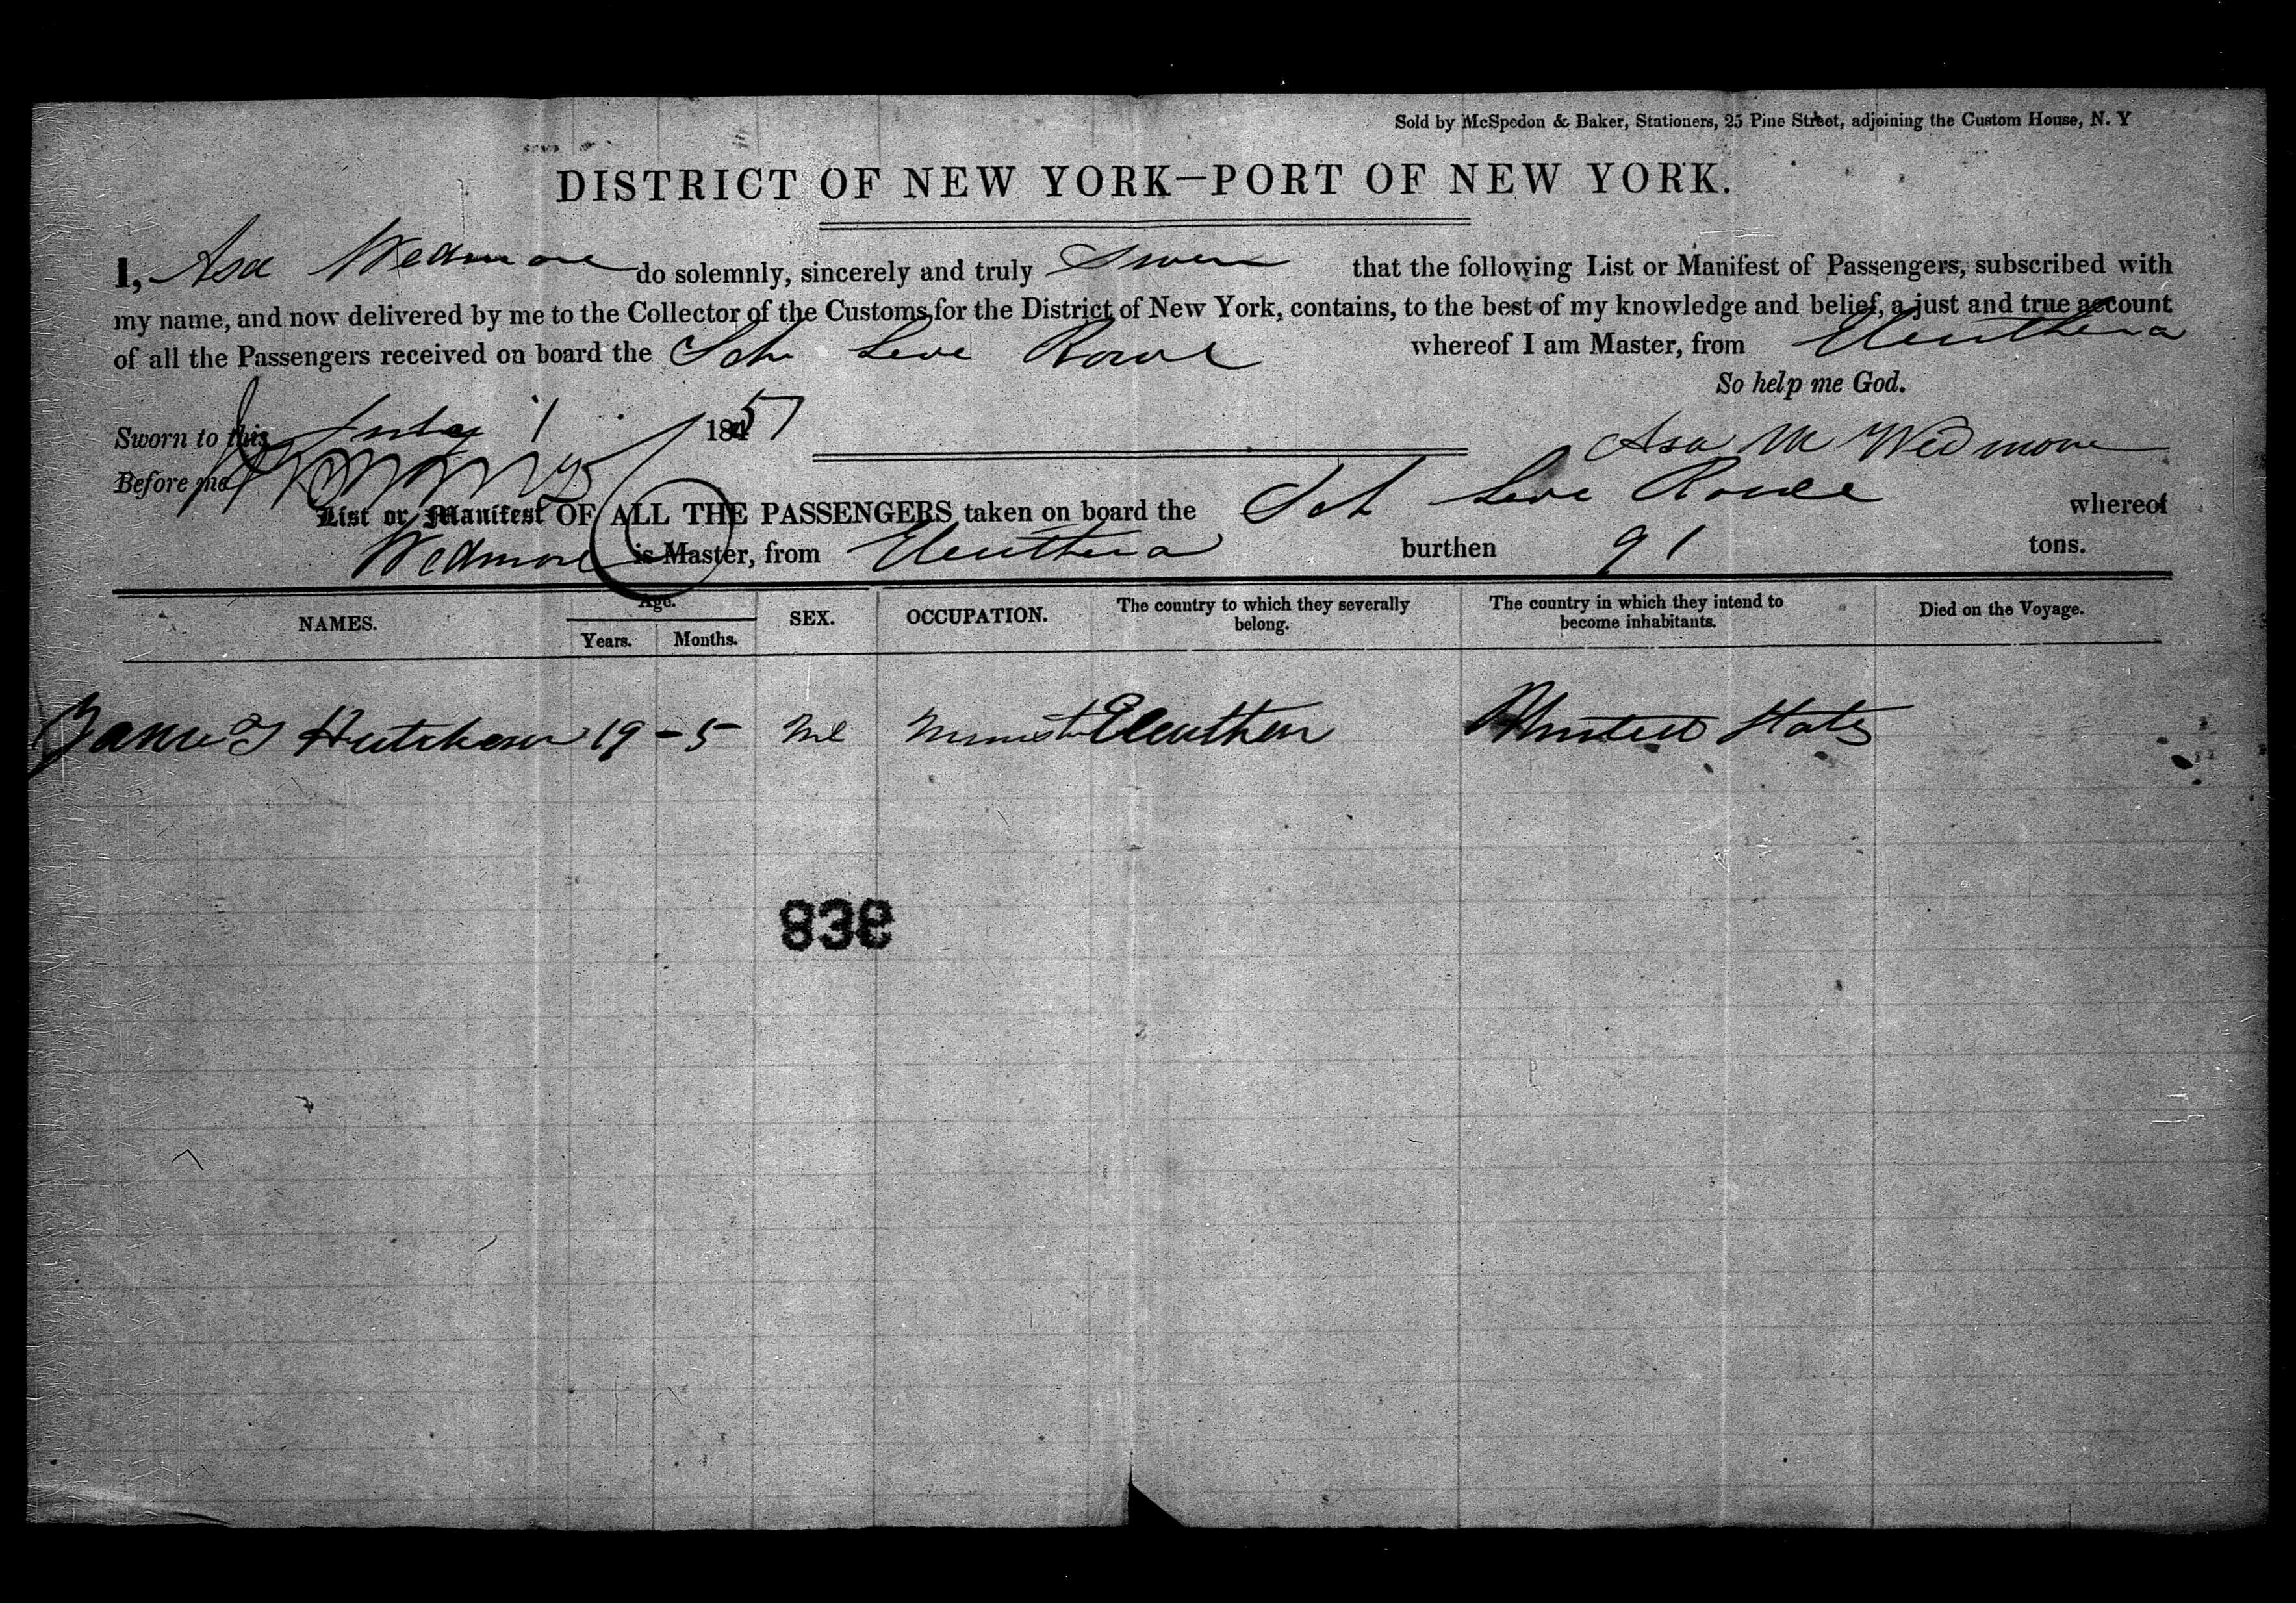 Sold by McSpedon & Baker, Stationers, 25 Pine Street, adjoining the Custom House, N. Y
DISTRICT OF NEW YORK—PORT OF NEW YORK.
I, Asa Wedmore do solemnly, sincerely and truly Swear that the following List or Manifest of Passengers, subscribed with
my name, and now delivered by me to the Collector of the Customs for the District of New York, contains, to the best of my knowledge and belief, a just and true account
of all the Passengers received on board the Sch Levi Rowe whereof I am Master, from Eleuthera
So help me God.
Sworn to this July 1 1851
Asa M Wedmore
Before me
List or Manifest OF ALL THE PASSENGERS taken on board the Sch Levi Rowe whereof
Wedmore is Master, from Eleuthera burthen 91 tons.
NAMES. Age. Years. Months. SEX. OCCUPATION. The country to which they severally belong. The country in which they intend to become inhabitants. Died on the Voyage.
James Hutcheson 19 - 5 Ml Minister Eleuthera United States
838